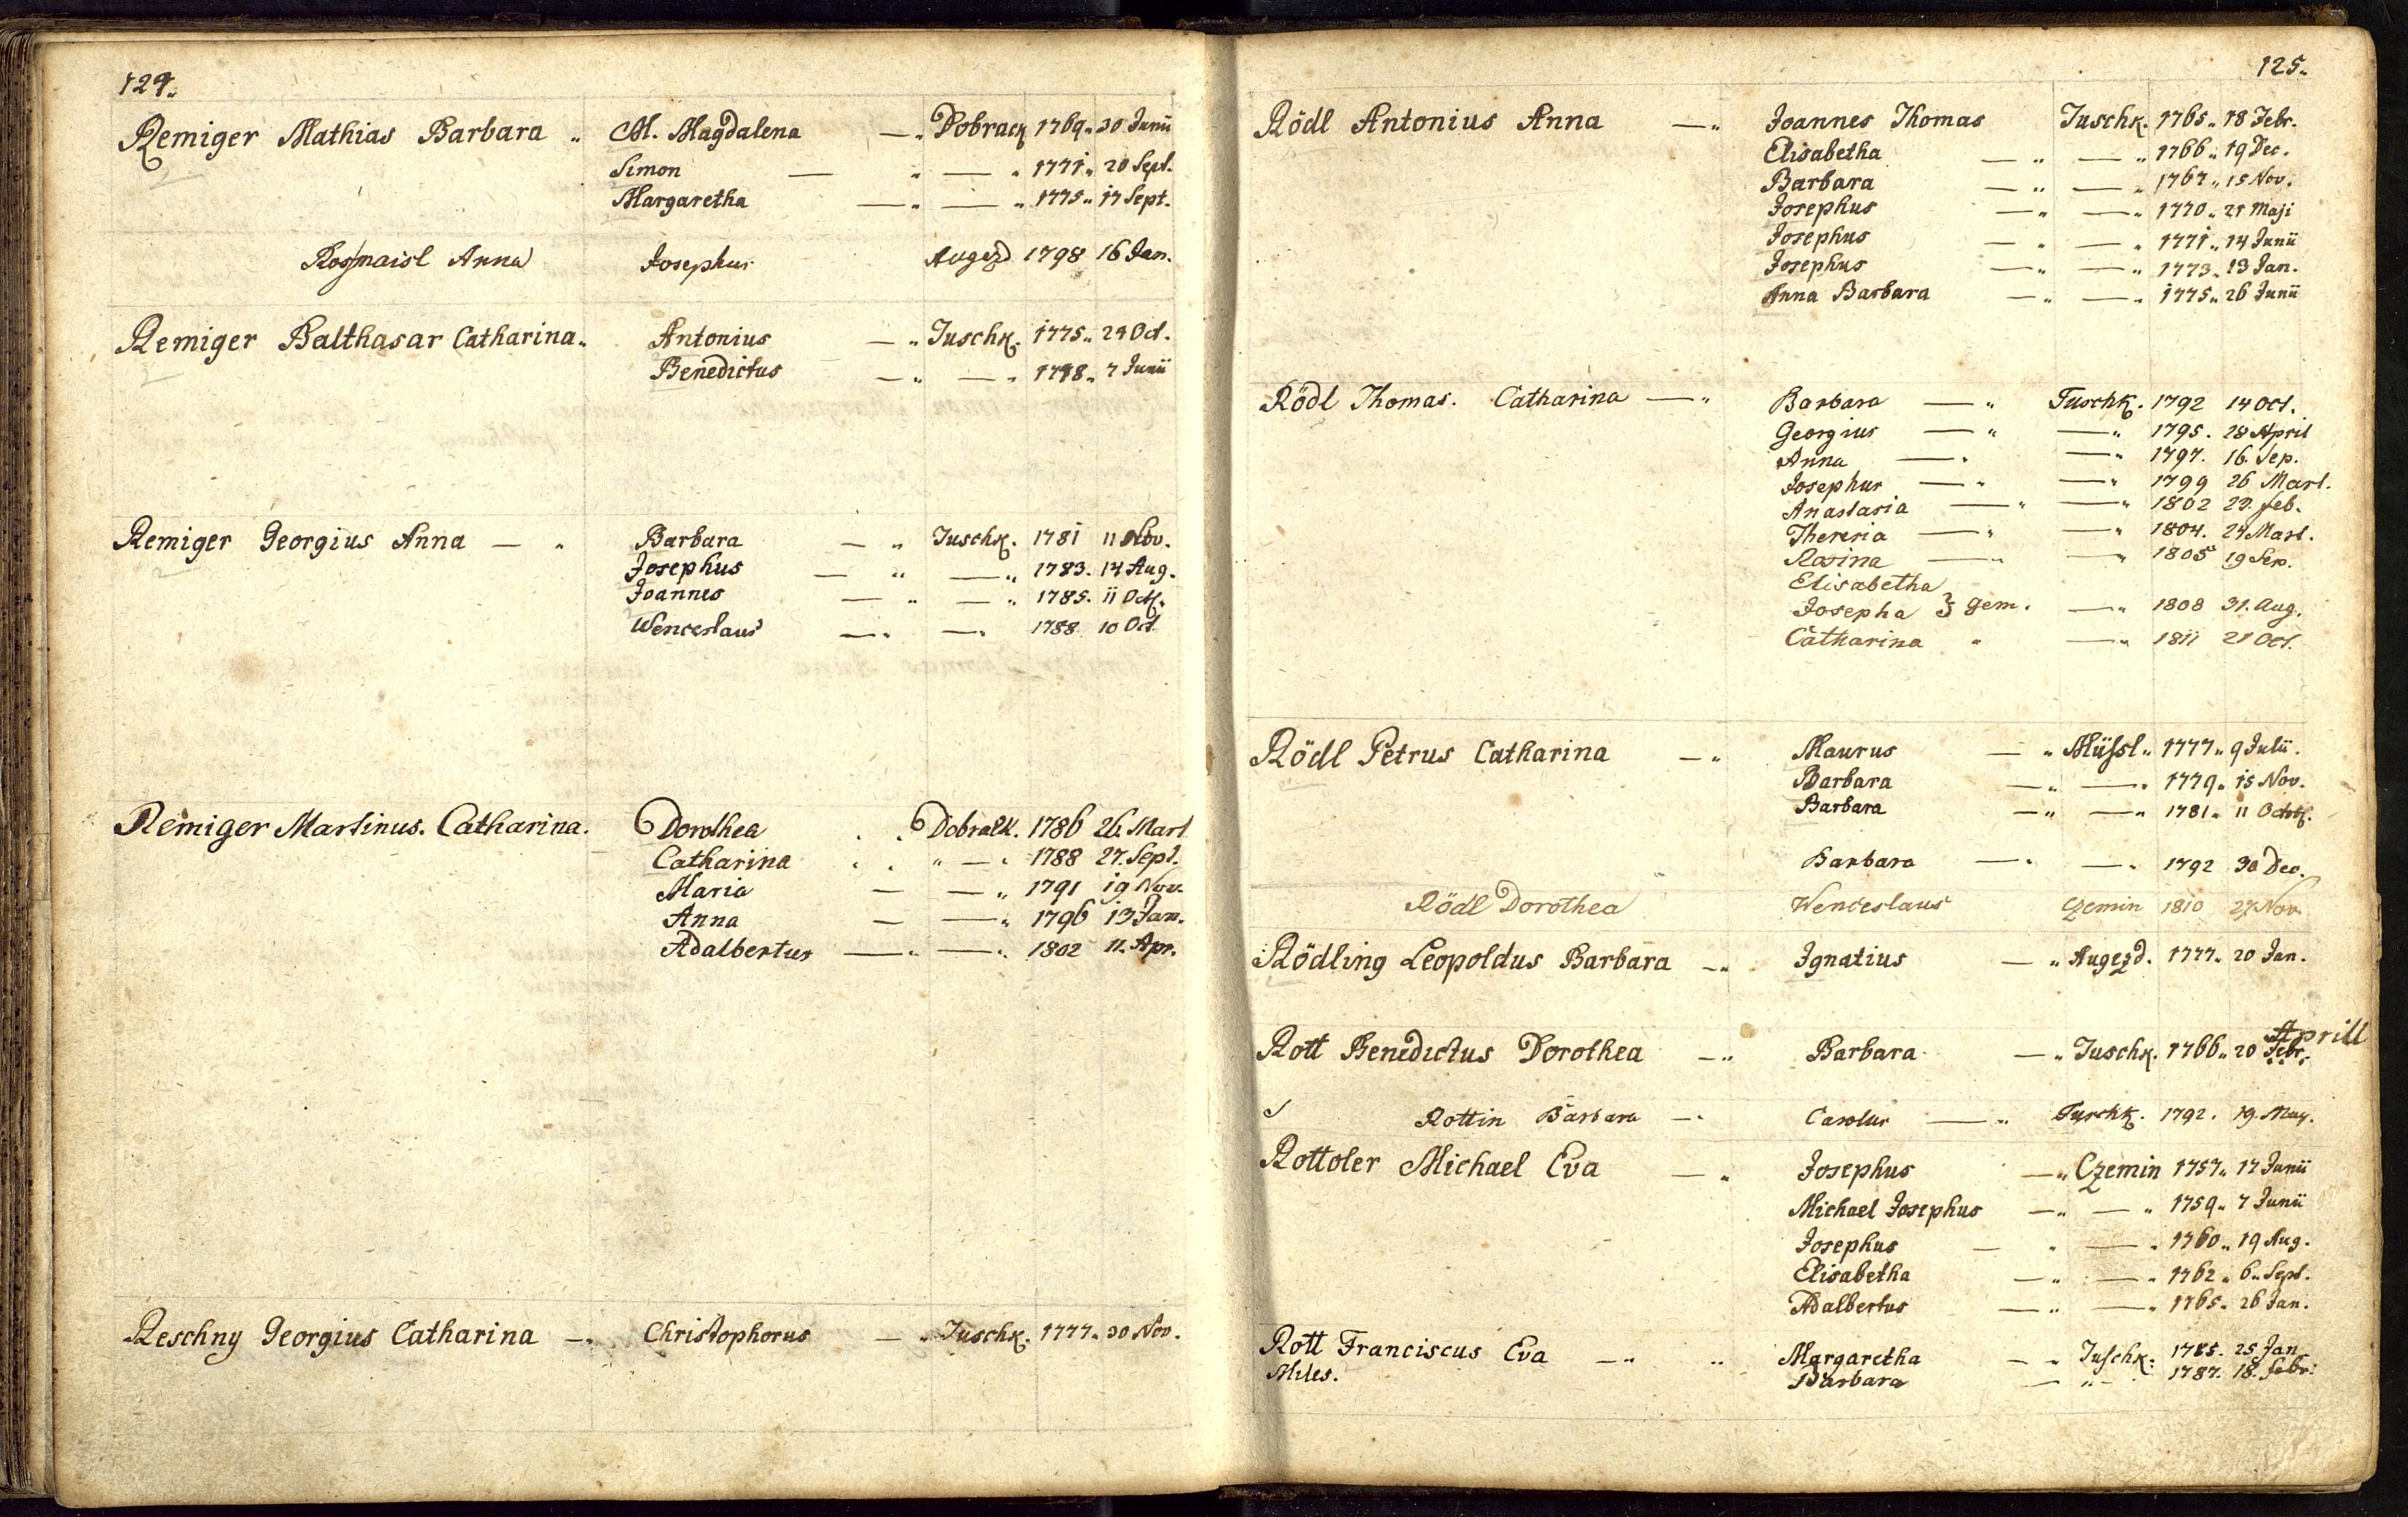 124.
Remiger Mathias Barbara „ M. Magdalena —„ Dobrack 1769„ 30 Junii
Simon — „ — „ 1771„ 20 Sept.
Margaretha —„ — „ 1775„ 17 Sept.
Rosmaisl Anna Josephus Augezd 1798 16 Jan.
Remiger Balthasar Catharina„ Antonius —„ Tuschk. 1775„ 24 Oct.
Benedictus —„ —„ 1778„ 7 Junii
Remiger Georgius Anna — „ Barbara —„ Tuschk. 1781 11 Nov.
Josephus — „ —„ 1783. 14 Aug.
Joannes — „ —„ 1785. 11 Oct.
Wenceslaus —„ —„ 1788 10 Oct
Remiger Martinus. Catharina. Dorothea . . Dobralk. 1786 26. Mart
Catharina . . „ — „ 1788 27. Sept.
Maria — —„ 1791 19 Nov.
Anna — —„ 1796 13 Jan.
Adalbertus —„ —„ 1802 11. Apr.
Reschny Georgius Catharina —„ Christophorus —„ Tuschk. 1777„ 30 Nov.
125.
Rödl Antonius Anna —„ Joannes Thomas Tuschk. 1765„ 18 Febr.
Elisabetha —„ —„ 1766„ 19 Dec.
Barbara —„ —„ 1767„ 15 Nov.
Josephus —„ —„ 1770„ 21 Maji
Josephus —„ —„ 1771„ 14 Junii
Josephus —„ —„ 1773„ 13 Jan.
Anna Barbara —„ —„ 1775„ 26 Junii
Rödl Thomas. Catharina —„ Barbara —„ Tuschk. 1792 14 Oct.
Georgius —„ —„ 1795. 28 April
Anna —„ —„ 1797. 16. Sep.
Josephus —„ —„ 1799 26 Mart.
Anastasia —„ —„ 1802 22. feb.
Theresia —„ —„ 1804. 24 Mart.
Rosina —„ —„ 1805 19 Sep.
Elisabetha
Josepha } gem. —„ 1808 31. Aug.
Catharina „ —„ 1811 21 Oct.
Rödl Petrus Catharina —„ Maurus —„ Müssl„ 1777„ 9 Julii.
Barbara —„ —„ 1779„ 15 Nov.
Barbara —„ —„ 1781„ 11 Octob.
Barbara —„ —„ 1792 30 Dec.
Rödl Dorothea Wenceslaus Czemin 1810 27 Nov.
Rödling Leopoldus Barbara —„ Ignatius —„ Augezd. 1777„ 20 Jan.
Aprill
Rott Benedictus Dorothea —„ Barbara —„ Tuschk. 1766„ 20 Febr.
Rottin Barbara —„ Carolus —„ Tuschk. 1792. 19. May.
Rottoler Michael Eva —„ Josephus —„ Czemin 1757„ 17 Junii
Michael Josephus —„ —„ 1759„ 7 Junii
Josephus —„ —„ 1760„ 19 Aug.
Elisabetha —„ —„ 1762„ 6„ Sept.
Adalbertus —„ —„ 1765„ 26 Jan.
Rott Franciscus Eva —„ „ Margaretha —„ Tuschk: 1785. 25 Jan
Miles. Barbara — „ — 1787. 18. febr: